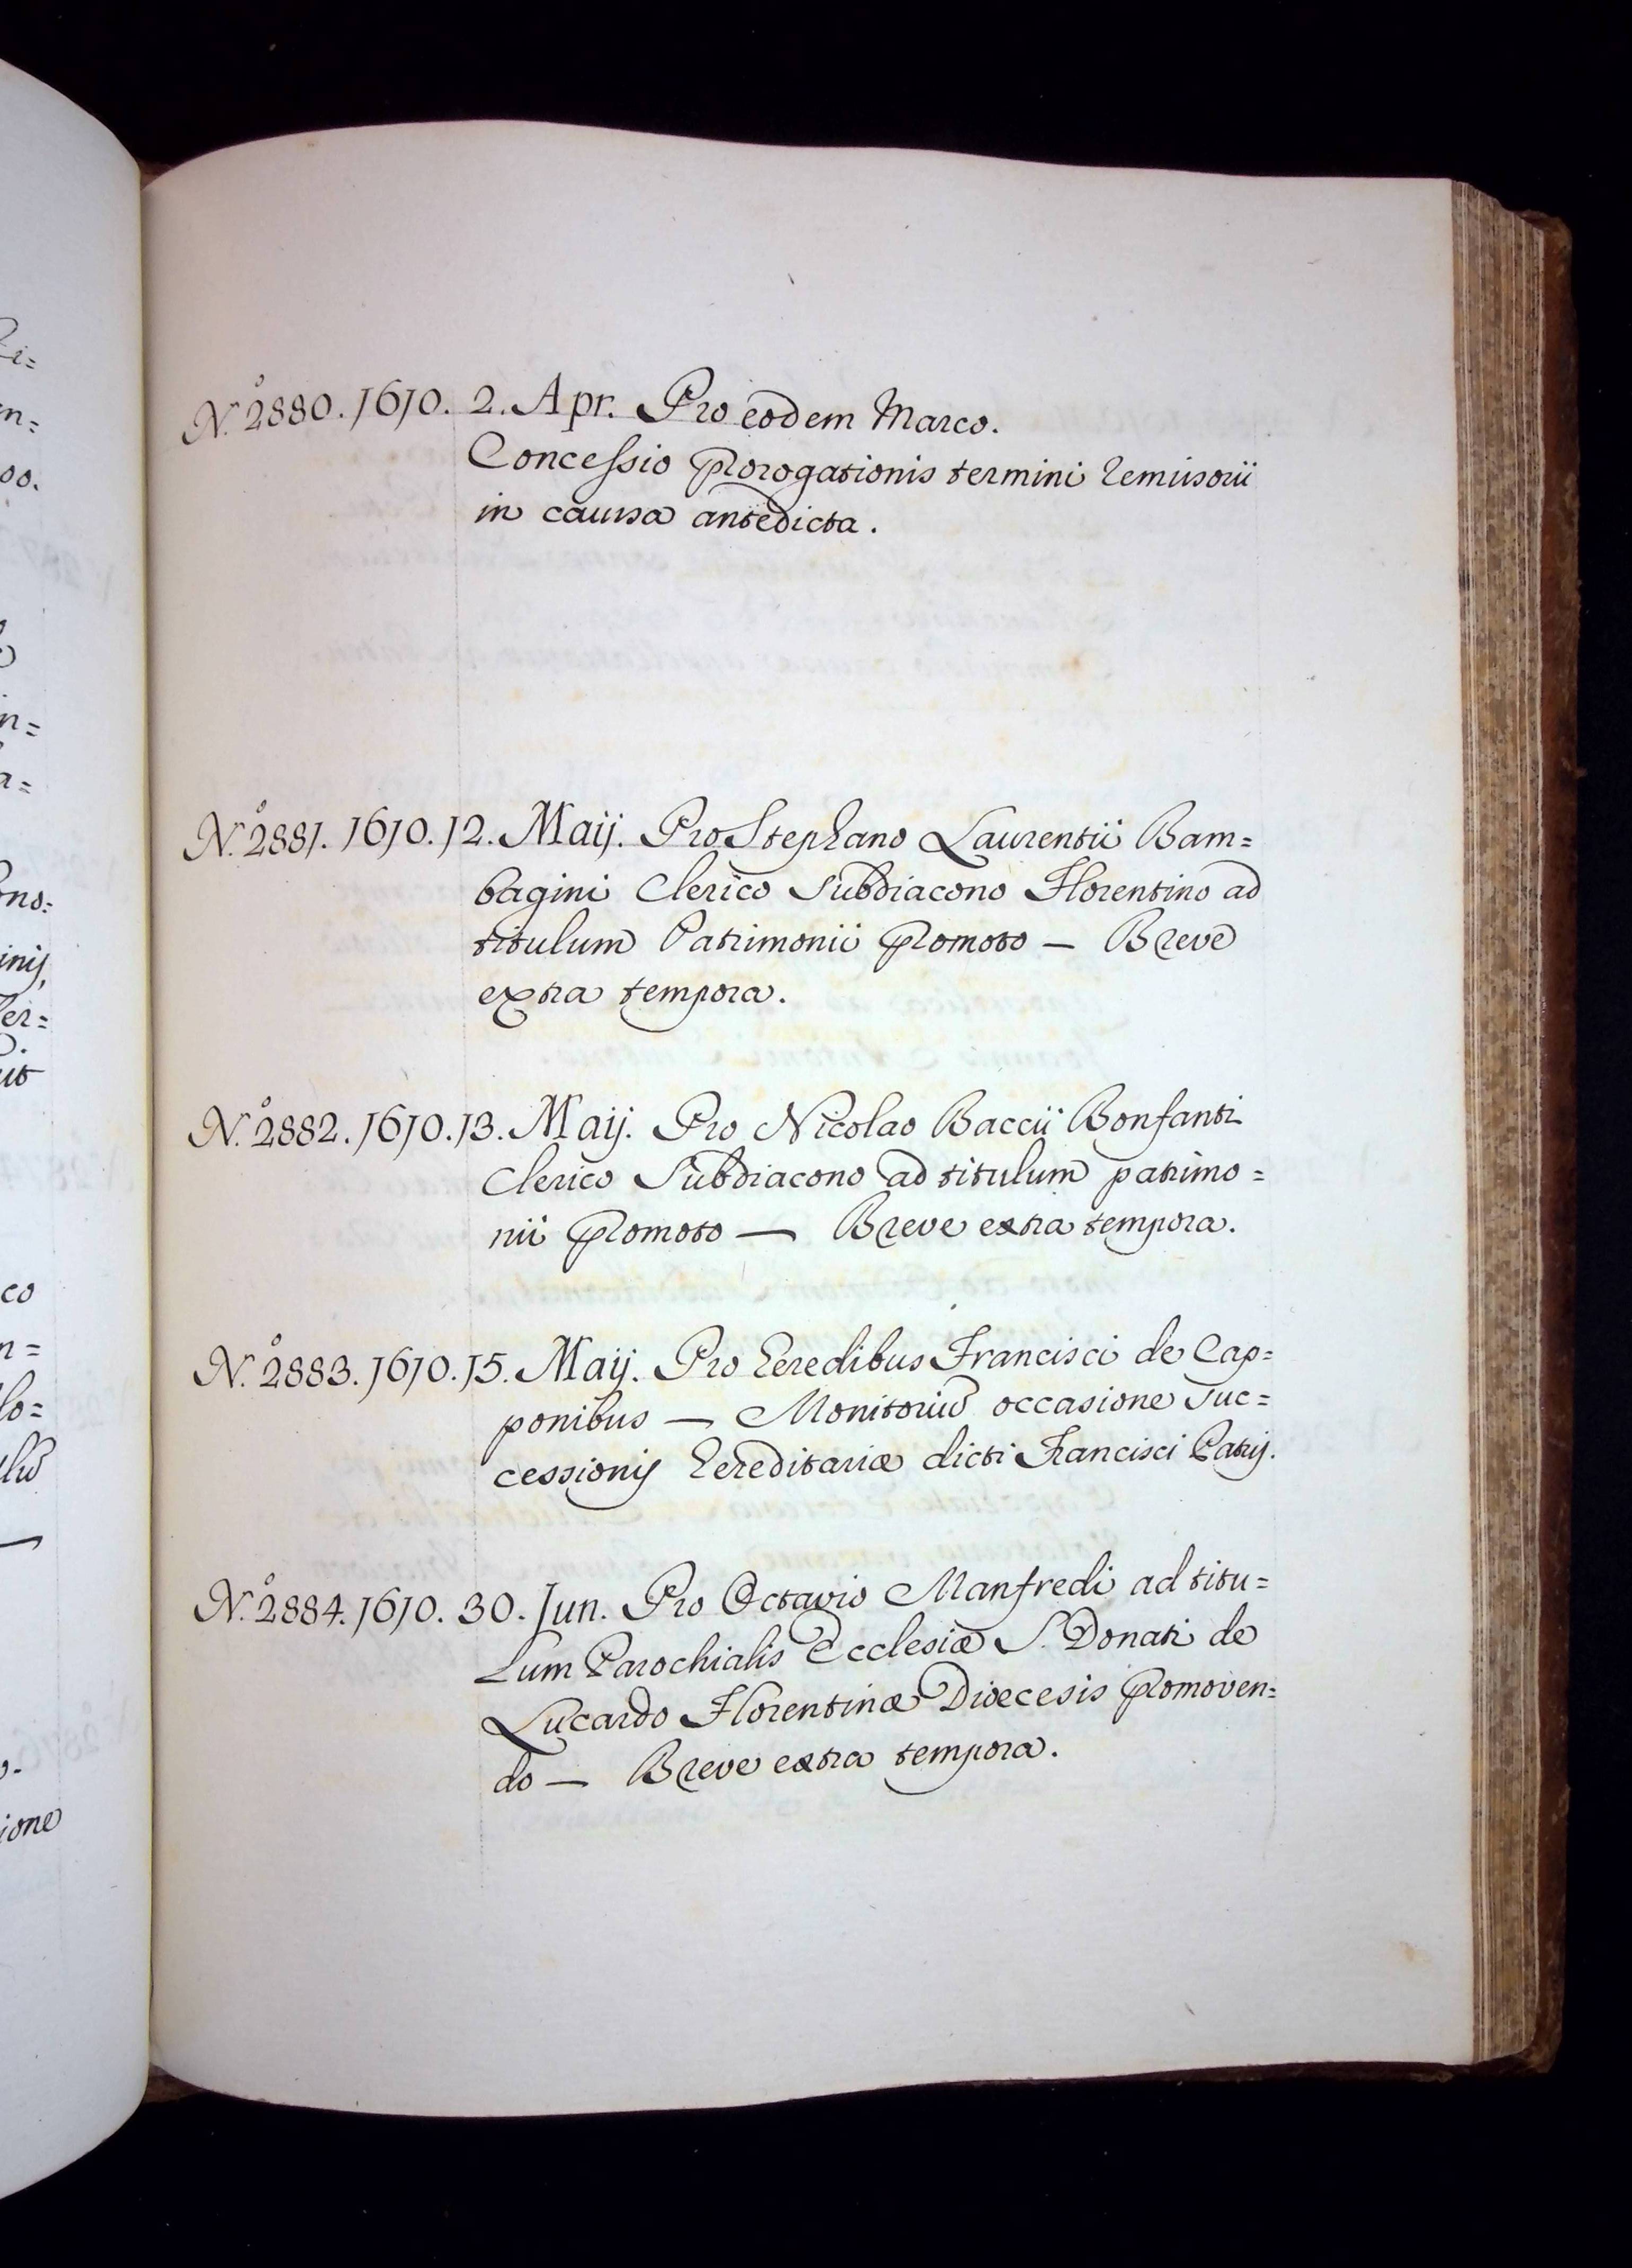 N.º 2880. 1610. 2. Apr. Pro eodem Marco.
Concessio prorogationis termini remissorii
in caussa antedicta.
N.º 2881. 1610. 12. Maij. Pro Stephano Laurentii Bam=
bagini Clerico Subdiacono Florentino ad
titulum Patrimonii promoto — Breve
extra tempora.
N.º 2882. 1610. 13. Maij. Pro Nicolao Baccii Bonfanti
Clerico Subdiacono ad titulum patrimo=
nii promoto — Breve extra tempora.
N.º 2883. 1610. 15. Maij. Pro heredibus Francisci de Cap=
ponibus — Monitoriũ occasione suc=
cessionis hereditariæ dicti Francisci Patris.
N.º 2884. 1610. 30. Jun. Pro Octavio Manfredi ad titu=
lum Parochialis Ecclesiæ S. Donati de
Lucardo Florentinæ Diœcesis promoven=
do — Breve extra tempora.